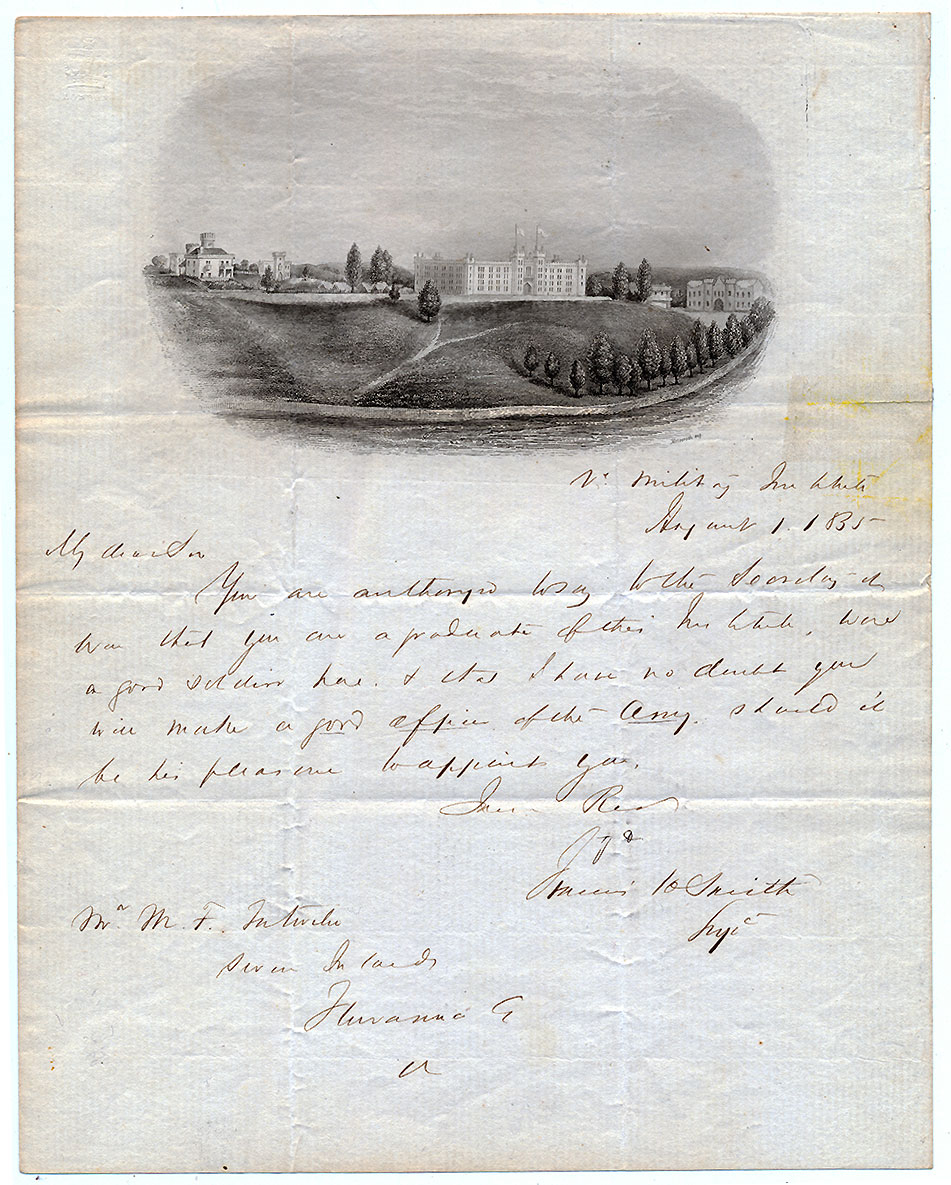 Va. Military Institute
August 1. 1855
My dear Sir
You are authorized to say to the Secretary of
War that you are a graduate of this Institute, were
a good soldier here. & that I have no doubt you
will make a good officer of the Army. should it
be his pleasure to appoint you.
Very Resy
Francis H Smith
Supt
Mr. M. F.
Seven Islands
Fluvanna Co
Va